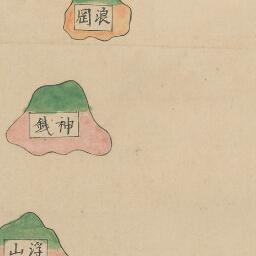 浪岡
神銭
浮山